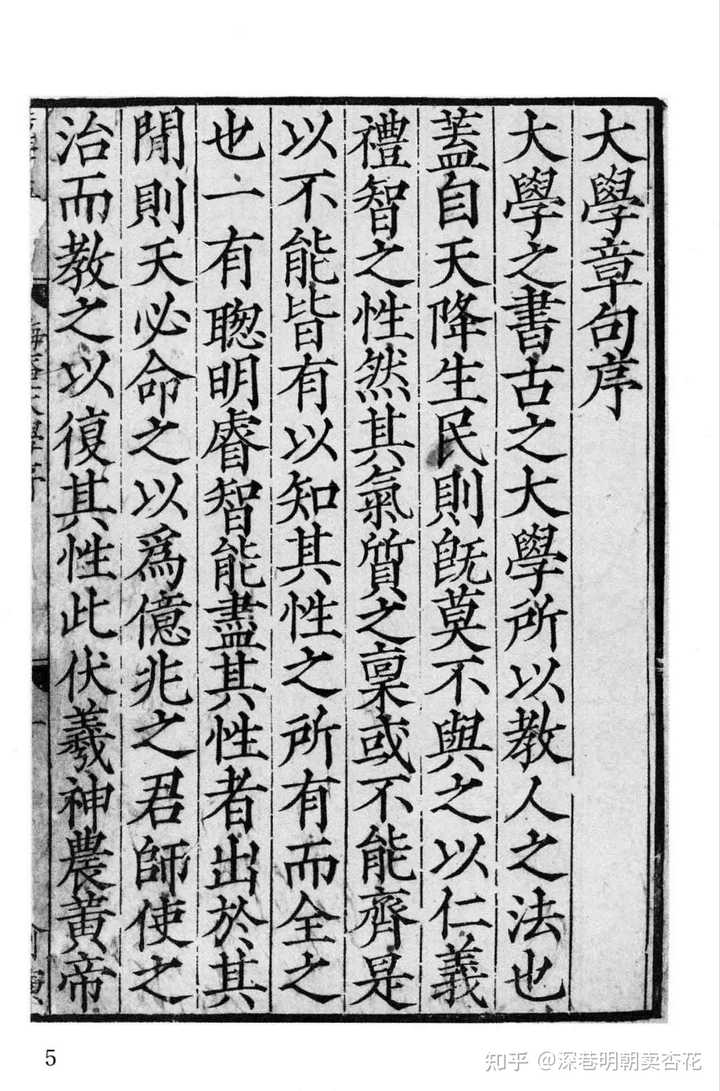 大學章句序
大學之書古之大學所以教人之法也
蓋自天降生民則旣莫不與之以仁義
禮智之性然其氣質之稟或不能齊是
以不能皆有以知其性之所有而全之
也一有聰明睿智能盡其性者出於其
閒則天必命之以爲億兆之君師使之
治而教之以復其性此伏羲神農黃帝
5
知乎 @深巷明朝卖杏花